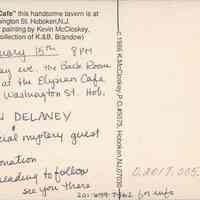 Cafe" this handsome tavern is at
ington St. Hoboken, NJ.
painting by Kevin McCloskey,
ollection of K.&B. Brandow)
uary 15th 8PM
ay eve. the Back Room
at the Elysian Cafe
Washington St. Hob.
DELANEY
cial mystery guest
onation
reading to follow
see you there
201-659-7962 for info
c.1986 K.McCloskey, P.O.#5075, Hoboken, NJ 07030
C.2017.005.